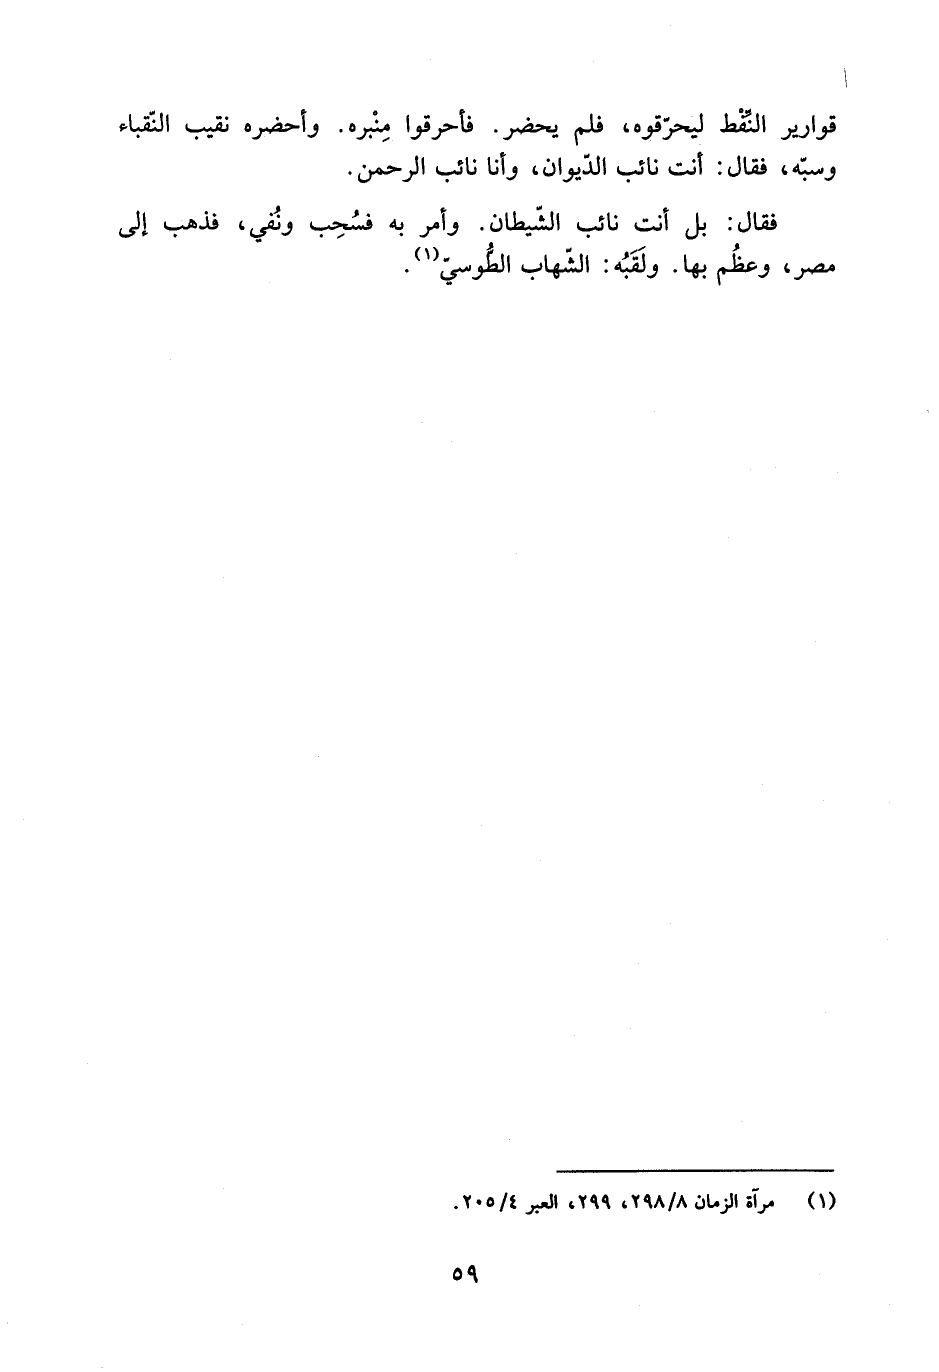 قوارير النِّفْط ليحرّقوه، فلم يحضر. فأحرقوا مِنْبره. وأحضره نقيب النّقباء
وسبّه، فقال: أنت نائب الدّيوان، وأنا نائب الرحمن.
فقال: بل أنت نائب الشّيطان. وأمر به فسُحِب ونُفي، فذهب إلى
مصر، وعظُم بها. ولَقَبُه: الشّهاب الطُّوسيّ(١).
(١) مرآة الزمان ٢٩٨/٨، ٢٩٩، العبر ٢٠٥/٤.
٥٩